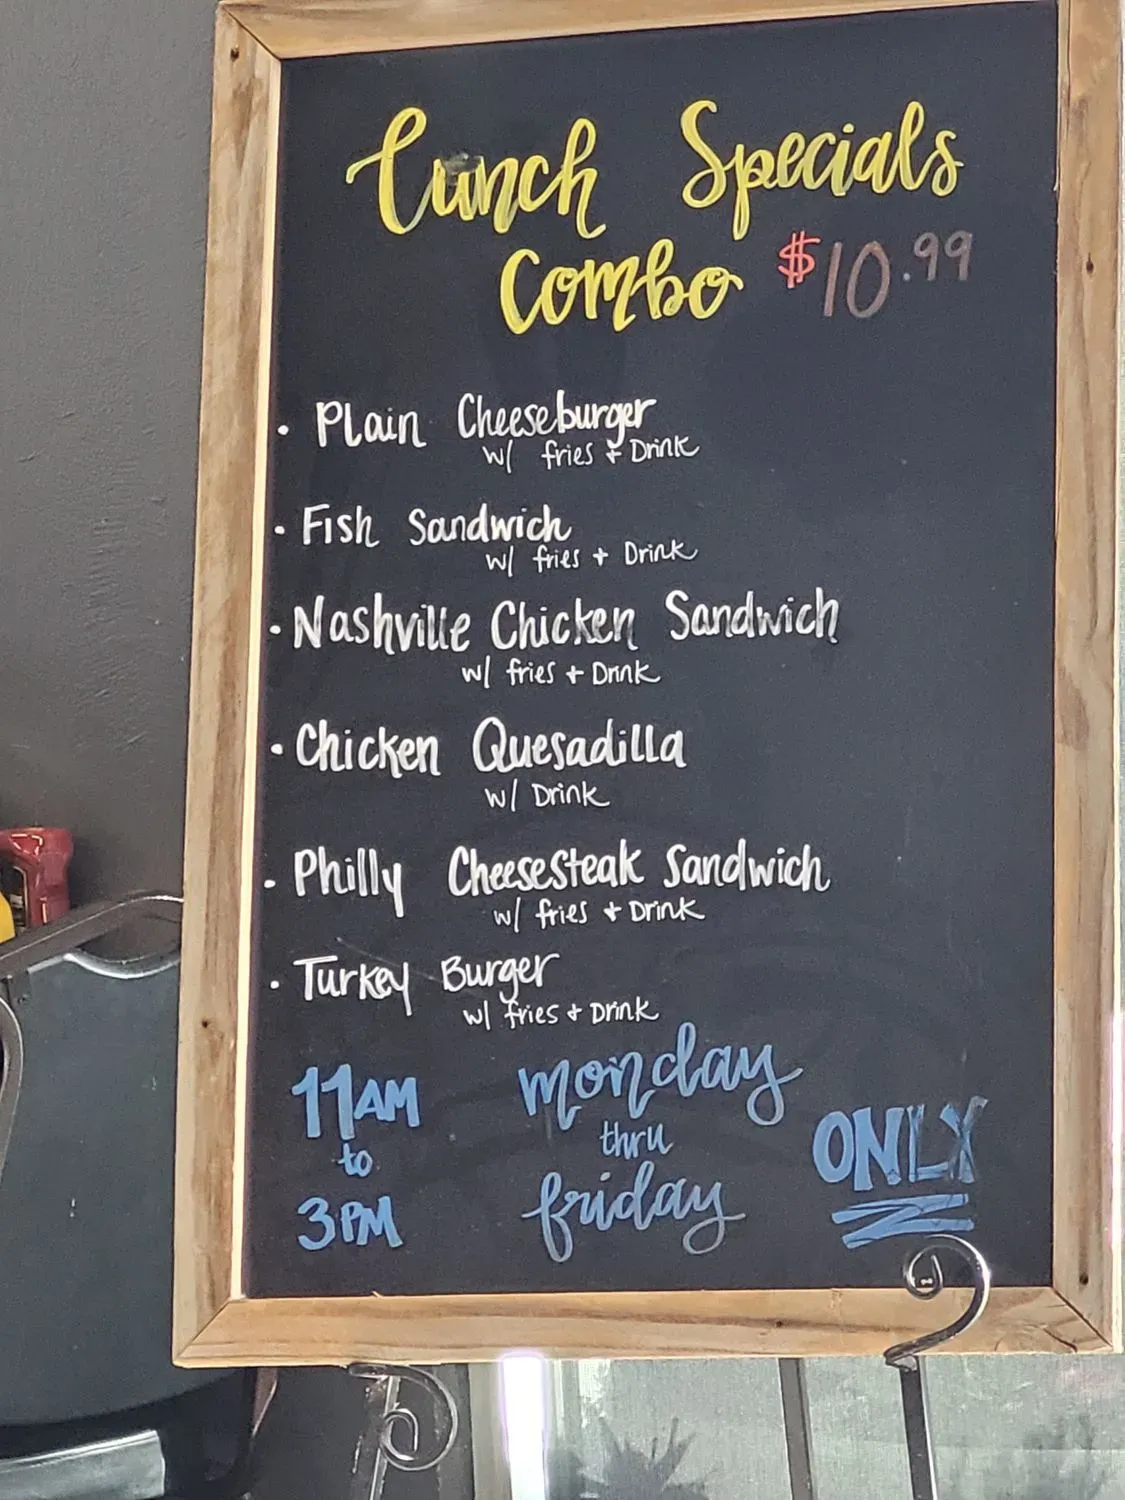 Lunch Specials
Combo $10.99
• Plain Cheeseburger
w/ fries + Drink
• Fish Sandwich
w/ fries + Drink
• Nashville Chicken Sandwich
w/ fries + Drink
• Chicken Quesadilla
w/ Drink
• Philly Cheesesteak Sandwich
w/ fries + Drink
• Turkey Burger
w/ fries + Drink
11AM
to
3PM
monday
thru
friday
ONLY